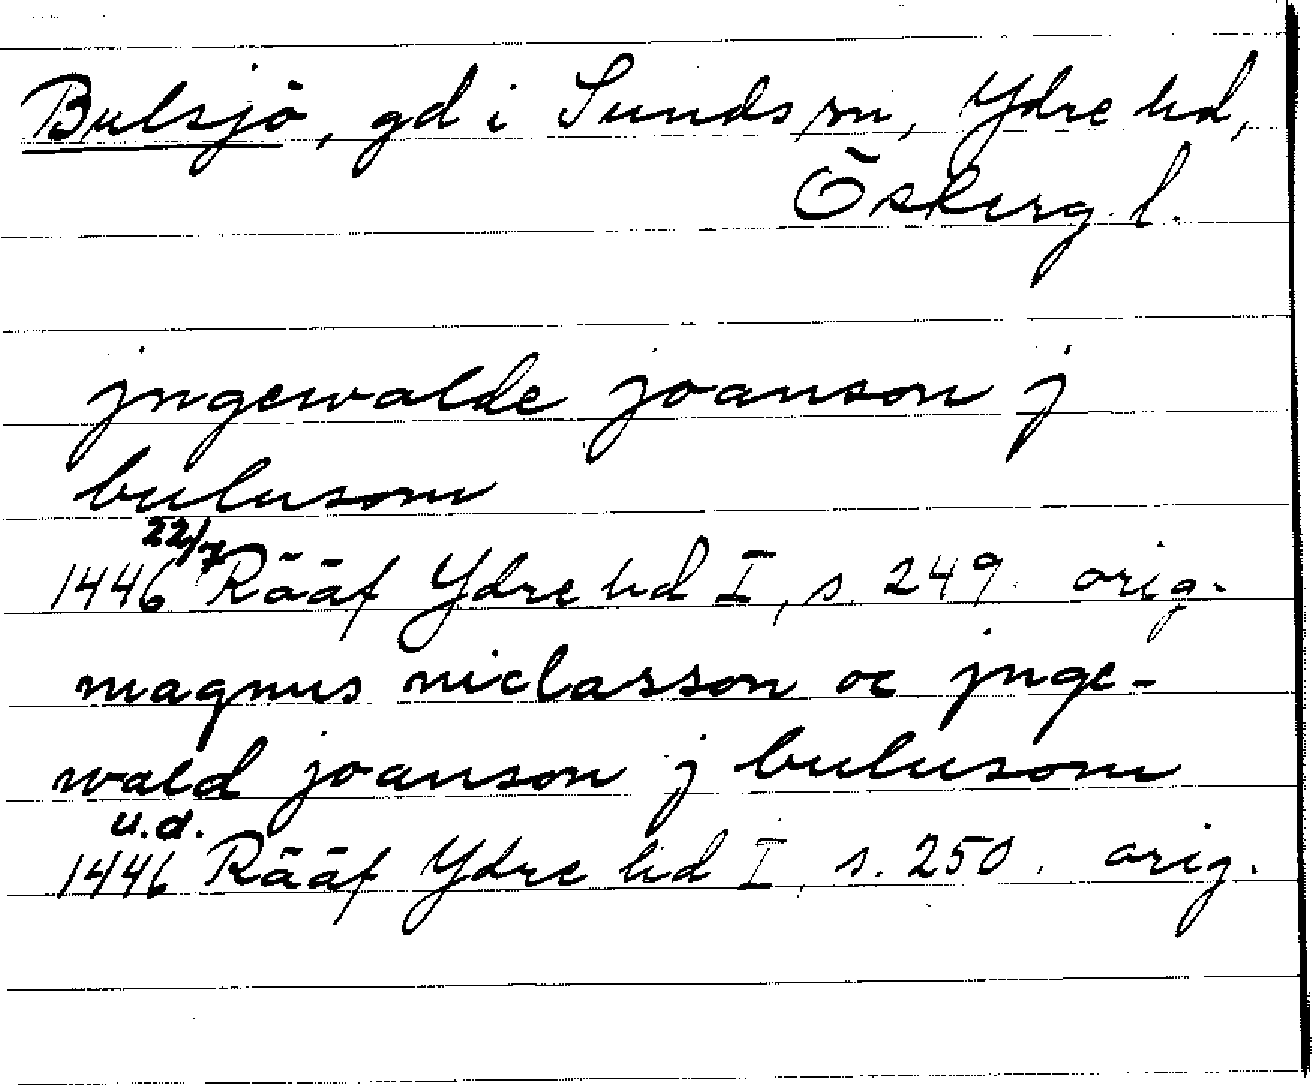 Bulsjö, gd i Sunds sn, Ydre hd,
Östberg. l.
jngewalde joanson j
bulusom
22/7
1446 Rääf Ydre hd I, s. 249. orig.
magnus niclasson oc jnge-
wald joanson j bulusom
u.d.
1446 Rääf Ydre hd I, s. 250. orig.